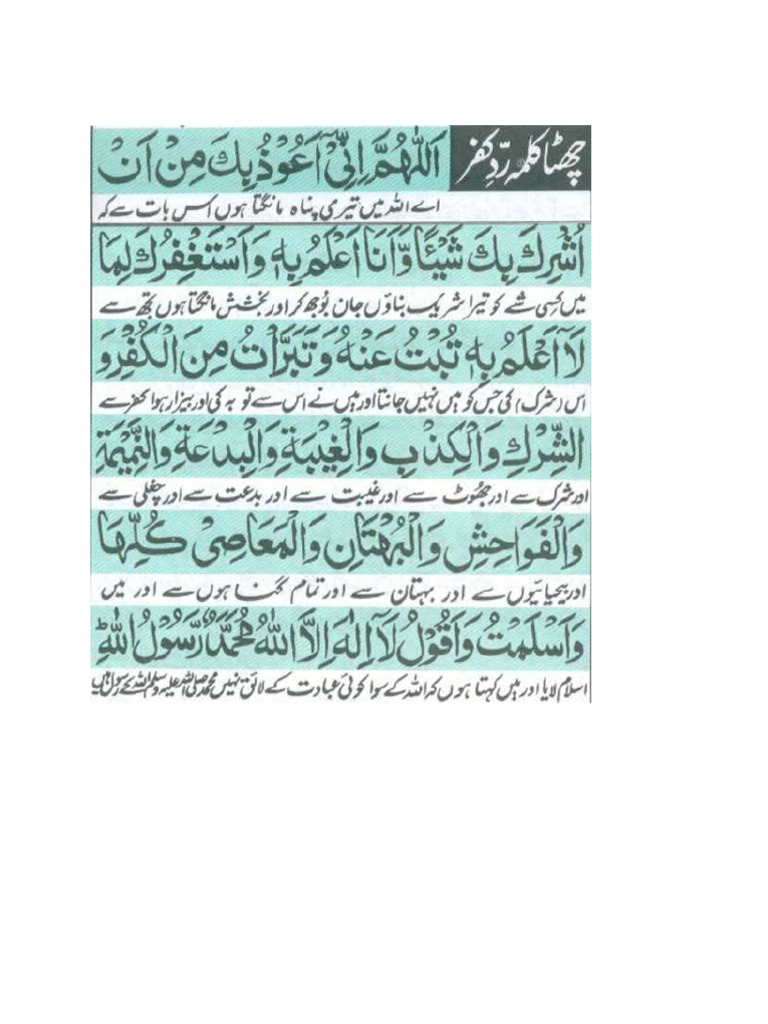 چھٹا کلمہ ردِّ کفر
اَللّٰهُمَّ اِنِّیْۤ اَعُوْذُ بِكَ مِنْ اَنْ
اے اللہ میں تیری پناہ مانگتا ہوں اس بات سے کہ
اُشْرِكَ بِكَ شَيْئًا وَّاَنَا اَعْلَمُ بِهٖ وَاَسْتَغْفِرُكَ لِمَا
میں کسی شے کو تیرا شریک بناؤں جان بوجھ کر اور بخشش مانگتا ہوں تجھ سے
لَاۤ اَعْلَمُ بِهٖ تُبْتُ عَنْهُ وَتَبَرَّأْتُ مِنَ الْكُفْرِ وَ
اس (شرک) کی جس کو میں نہیں جانتا اور میں نے اس سے توبہ کی اور بیزار ہوا کفر سے
الشِّرْكِ وَالْكِذْبِ وَالْغِيْبَةِ وَالْبِدْعَةِ وَالنَّمِيْمَةِ
اور شرک سے اور جھوٹ سے اور غیبت سے اور بدعت سے اور چغلی سے
وَالْفَوَاحِشِ وَالْبُهْتَانِ وَالْمَعَاصِیْ كُلِّهَا
اور بیحیائیوں سے اور بہتان سے اور تمام گناہوں سے اور میں
وَاَسْلَمْتُ وَاَقُوْلُ لَاۤ اِلٰهَ اِلَّا اللّٰهُ مُحَمَّدٌ رَّسُوْلُ اللّٰهِؕ
اسلام لایا اور میں کہتا ہوں کہ اللہ کے سوا کوئی عبادت کے لائق نہیں محمد صلی اللہ علیہ وسلم اللہ کے رسول ہیں